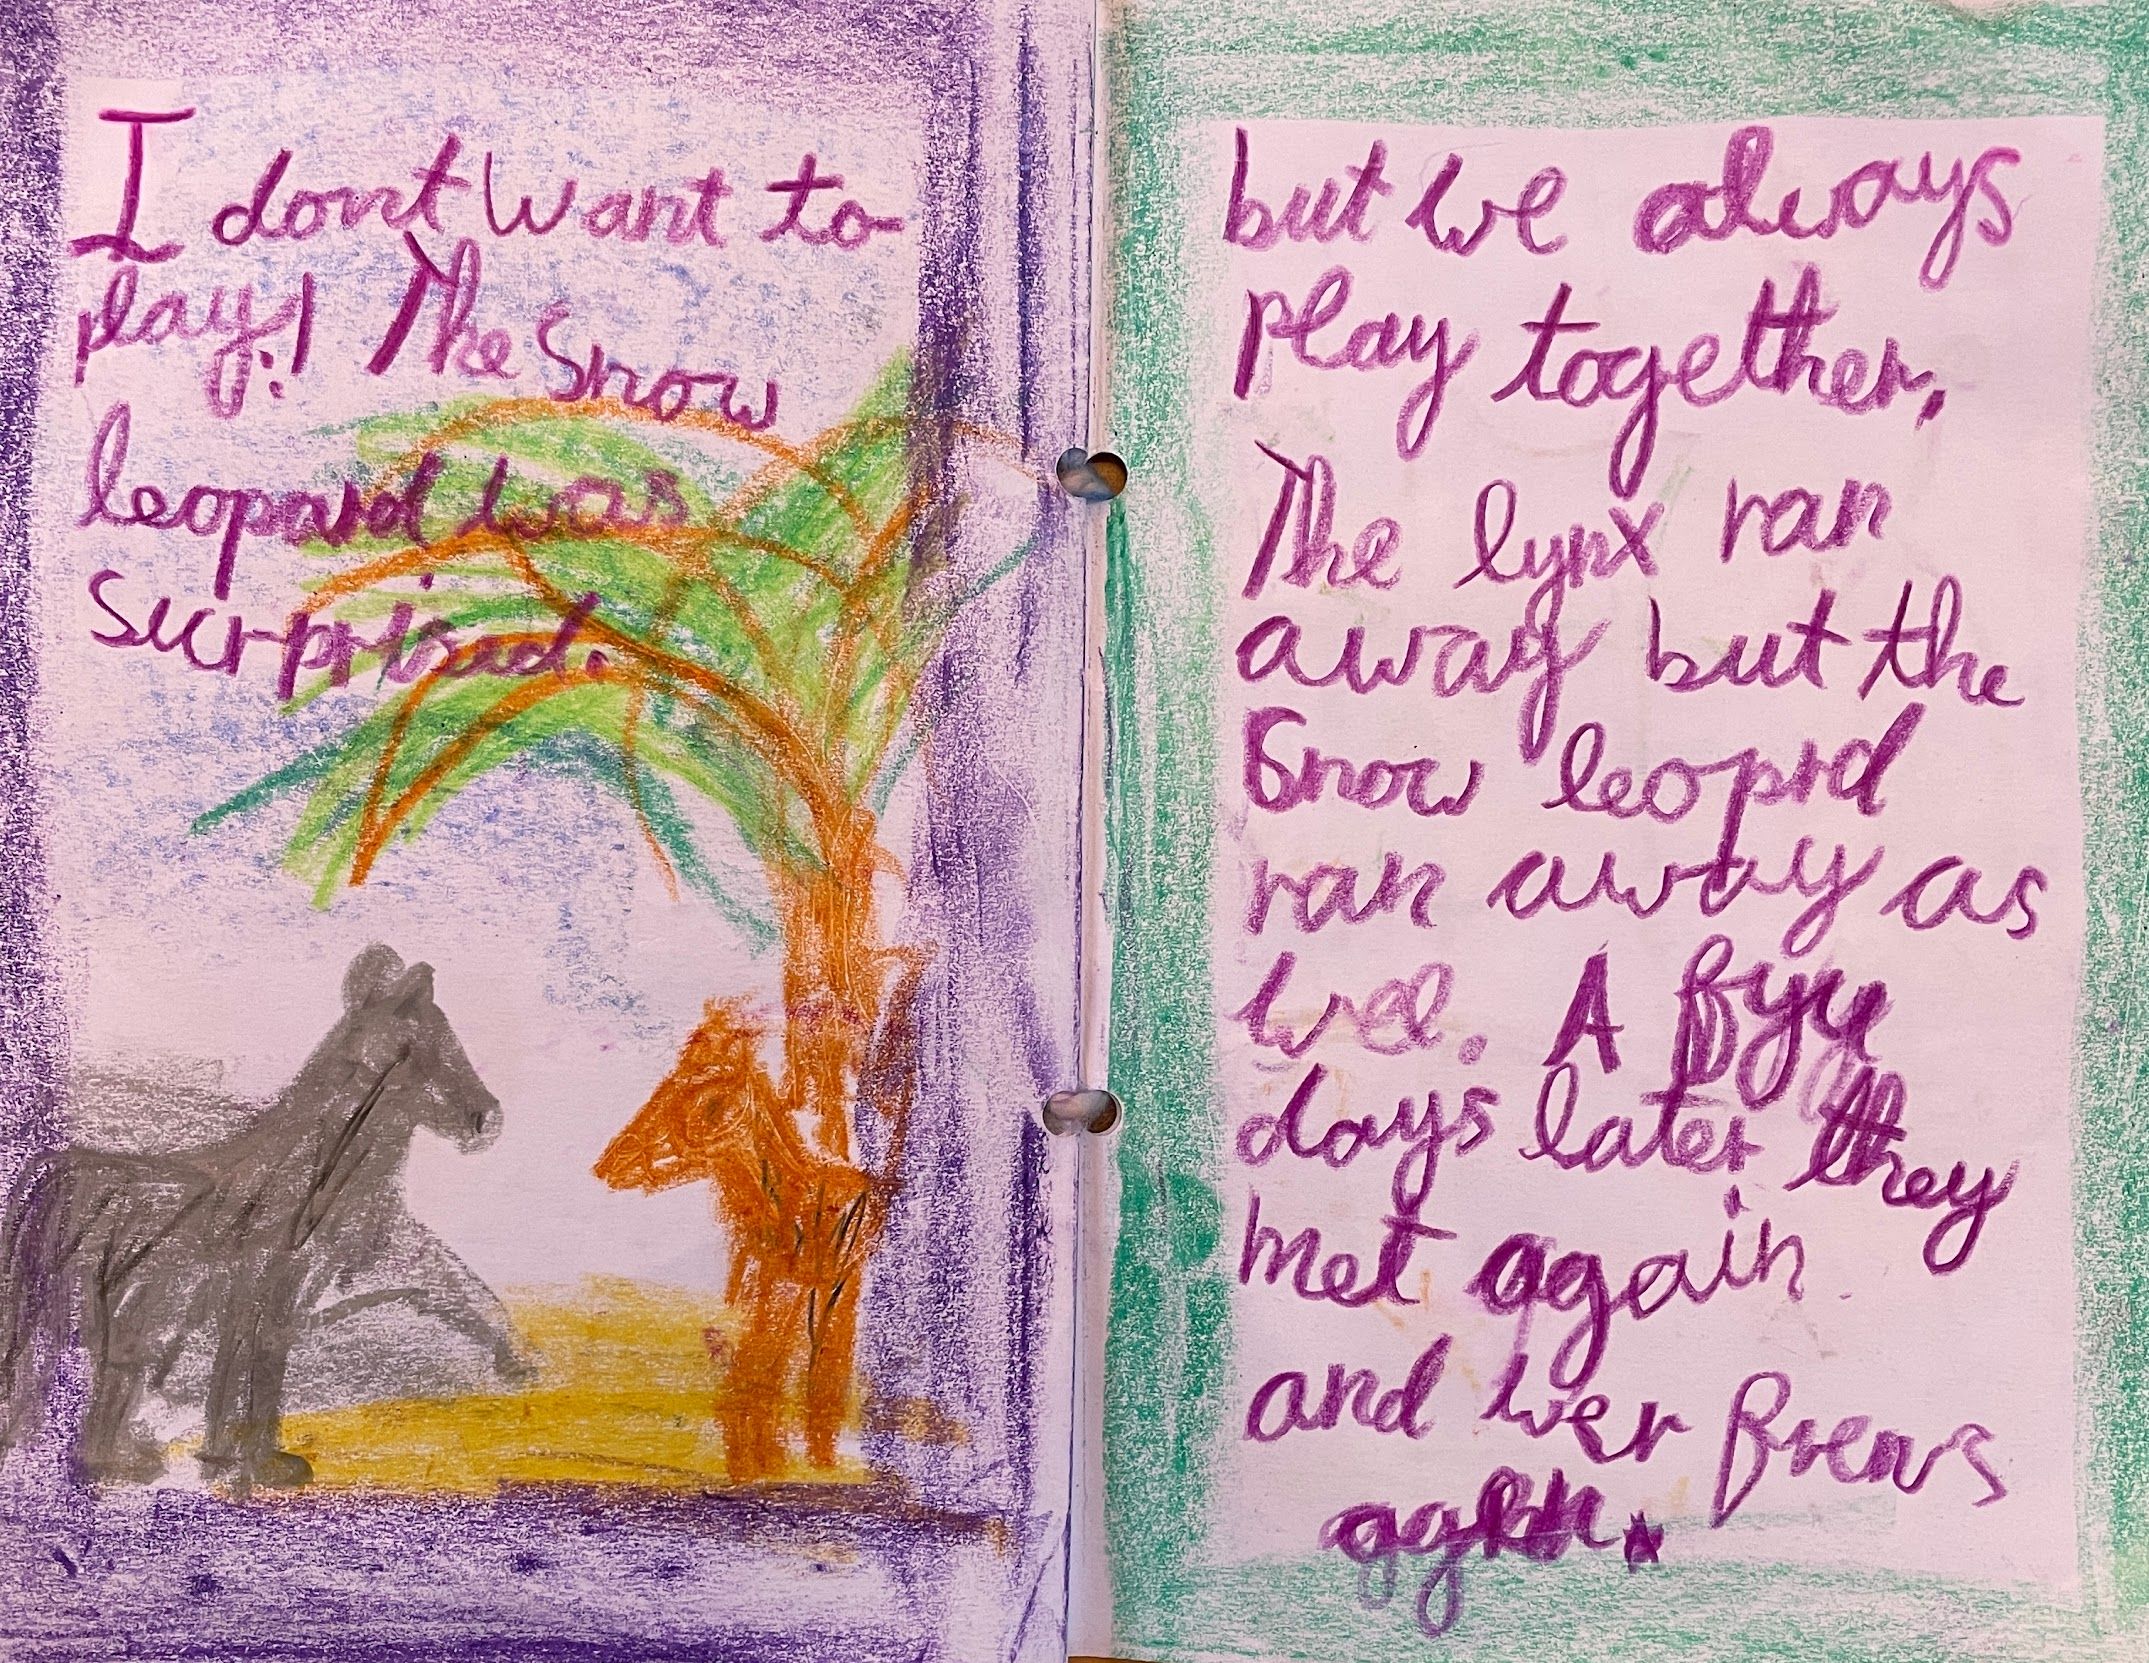 I dont want to
play! The Snow
leopard was
Surprisud.
but we always
play together,
The lynx ran
away but the
Snow leoprd
ran away as
wel. A fyu
days later they
met again.
and wer frens
again.